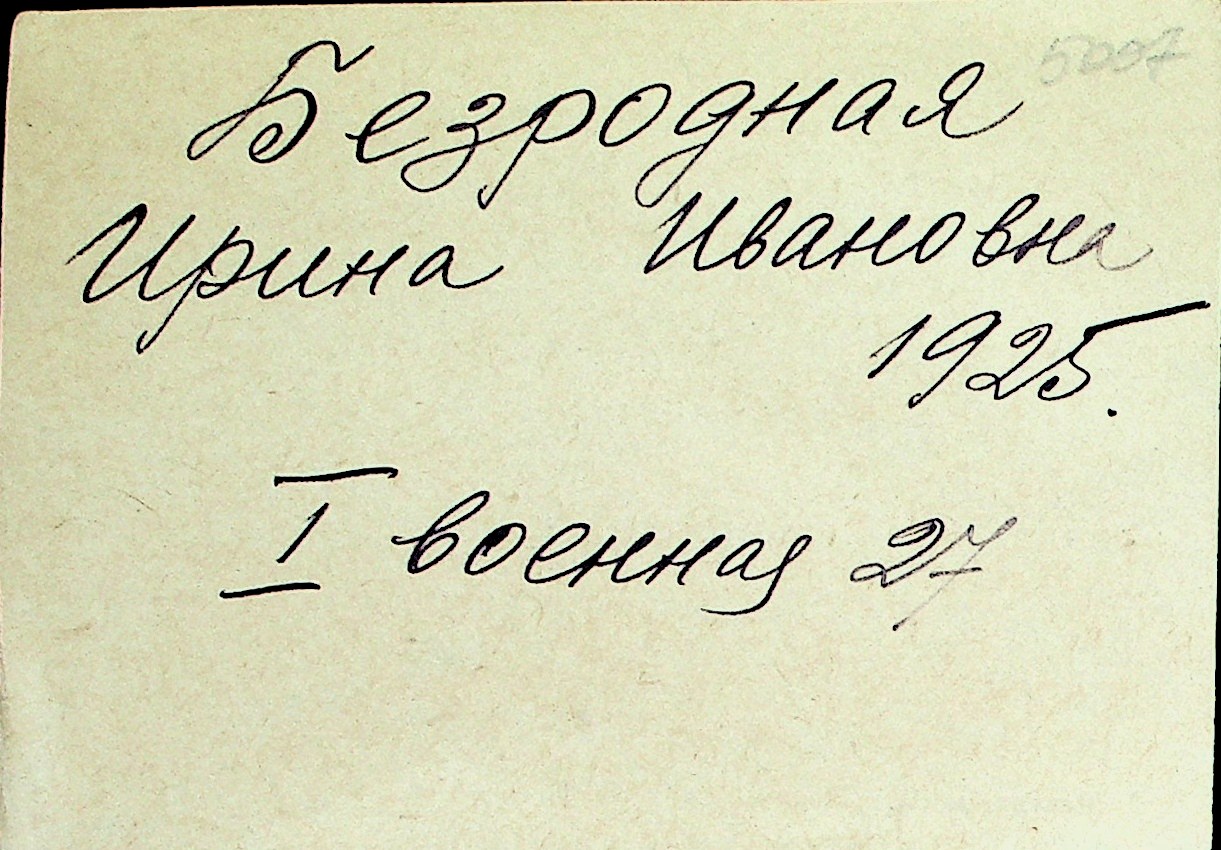 5007
Безродная
Ирина Ивановна
1925.
I военная 27